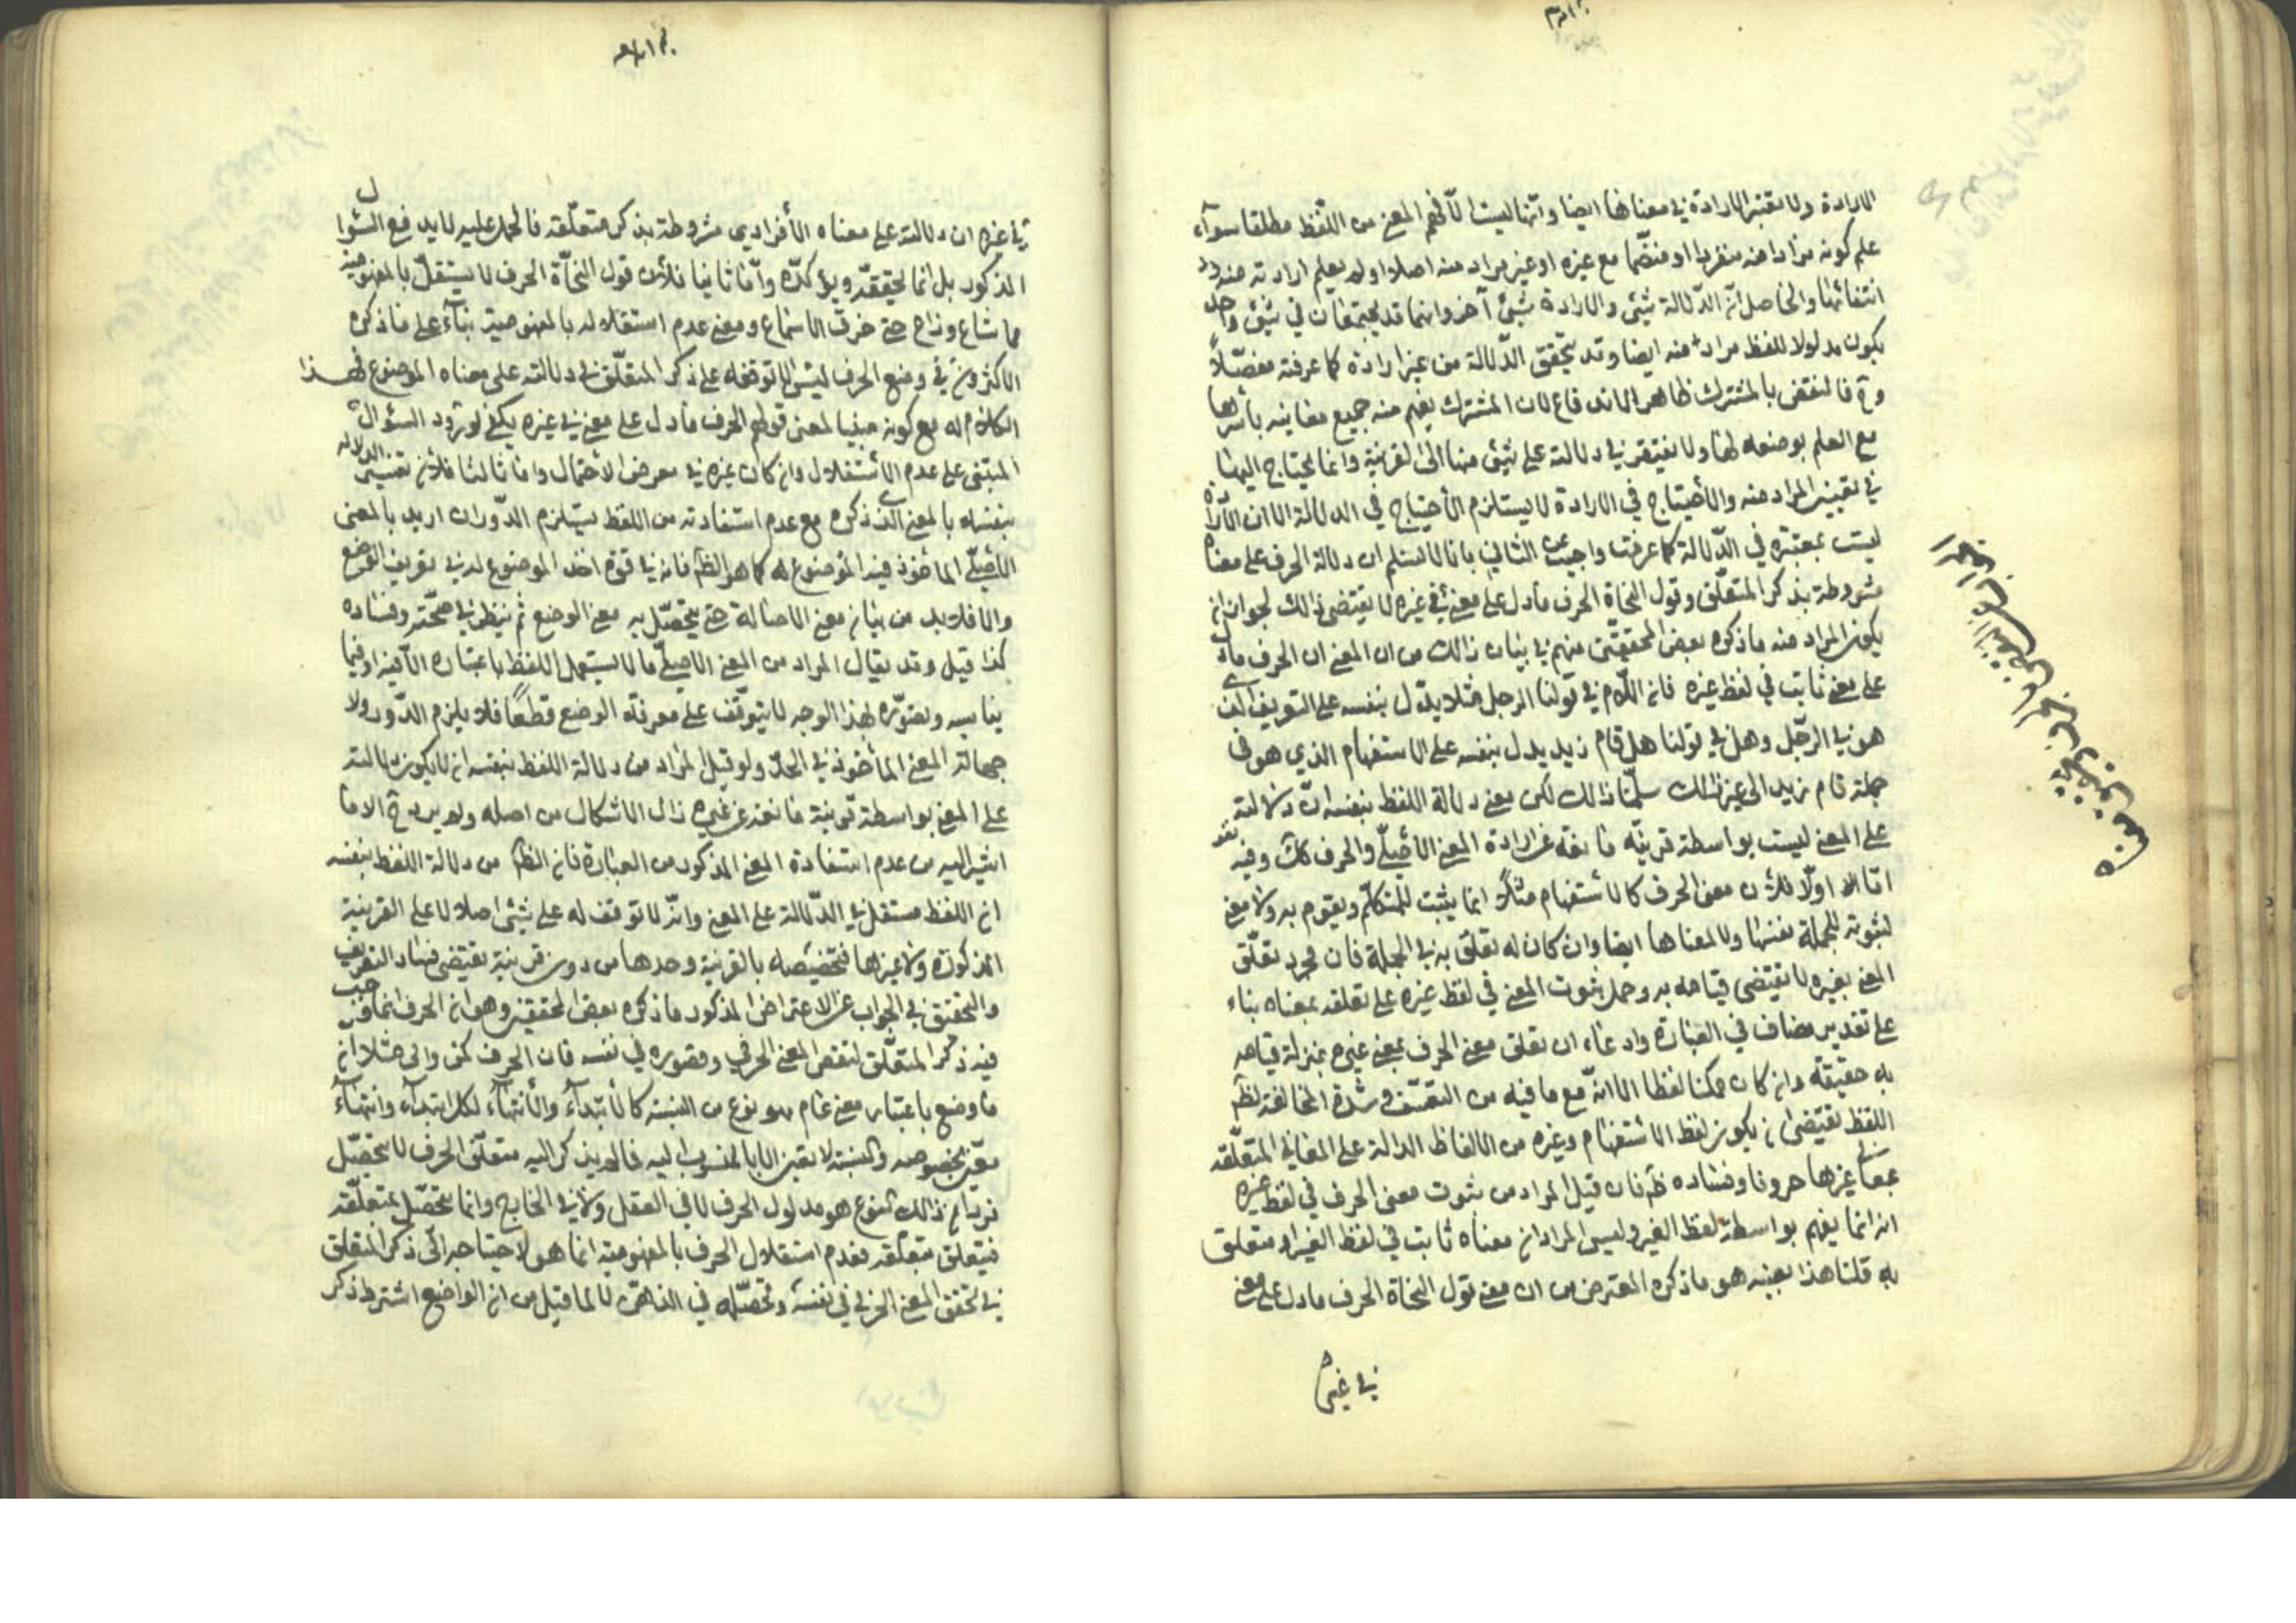 الارادة ولا تعتبر الارادة في معناها ايضا وانها ليست الا فهم المعنى من اللفظ مطلقا سوآء
علم كونه مرادا منه منفردا او منضما مع غيره او غير مراد منه اصلا او لم يعلم ارادته منه ولا
انتفائها والحاصل ان الدلالة شيئ والارادة شيئ آخر وانهما قد يجتمعان في شيئ واحد
يكون مدلولا للفظ مرادا منه ايضا وقد تتحقق الدلالة من غير ارادة كما عرفته مفصلاً
وح فالنقض بالمشترك ظاهر الاندفاع لان المشترك يفهم منه جميع معانيه بأسرها
مع العلم بوضعه لها ولا يفتقر في دلالته على شيئ منها الى القرينة وانما يحتاج اليها
في تعيين المراد منه والأحتياج في الارادة لا يستلزم الأحتياج في الدلالة الا ان الأرادة
ليست بمعتبرة في الدلالة كما عرفت واجيب عن الثاني بانا لا نسلم ان دلالة الحرف على معناه
مشروطة بذكر المتعلق وقول النحاة الحرف مادل على معنى في غيره لا يقتضي ذالك لجواز ان
يكون المراد منه ما ذكره بعض المحققين منهم في بيان ذالك من ان المعنى ان الحرف مادل
على معنى ثابت في لفظ غيره فان اللام في قولنا الرجل مثلا يدل بنفسه على التعريف الذي
هو في الرجل وهل في قولنا هل قام زيد يدل بنفسه على الاستفهام الذي هو في
جملة قام زيد الى غير ذالك سلمنا ذالك لكن معنى دلالة اللفظ بنفسه ان دلالته
على المعنى ليست بواسطة قرينة مانعة عن ارادة المعنى الأصلي والحرف كك وفيه نظر
اما اولا فلان معنى الحرف كالاستفهام مثلاً انما يثبت للمتكلم ويقوم به ولا معنى
لثبوته للجملة نفسها ولا لمعناها ايضا وان كان له تعلق به في الجملة فان مجرد تعلق
المعنى بغيره لا يقتضي قيامه به وحمل ثبوت المعنى في لفظ غيره على تعلقه بمعناه بناء
على تقدير مضاف في العبارة وادعاء ان تعلق معنى الحرف بمعنى غيره بمنزلة قيامه
به حقيقة وان كان ممكنا لفظا الا انه مع ما فيه من التعسف وشدة المخالفة لظاهر
اللفظ يقتضي ان يكون لفظ الاستفهام وغيره من الالفاظ الدالة على المعاني المتعلقة
بمعاني غيرها حروفا وفساده ظ فان قيل المراد من ثبوت معنى الحرف في لفظ غيره
انه انما يفهم بواسطة لفظ الغير وليس المراد ان معناه ثابت في لفظ الغير او متعلق
به قلنا هذا بعينه هو ما ذكره المعترض من ان معنى قول النحاة الحرف مادل على معنى
في غيره
في غيره ان دلالته على معناه الأفرادي مشروطة بذكر متعلقه فالحمل عليه لا يدفع السؤال
المذكور بل انما يحققه ويؤكده واما ثانيا فلأن قول النحاة الحرف لا يستقل بالمفهومية
مما شاع وذاع حتى خرق الاسماع ومعنى عدم استقلاله بالمفهومية بناء على ما ذكره
الاكثرون في وضع الحرف ليس الا توقفه على ذكر المتعلق في دلالته على معناه الموضوع فهذا
الكلام له مع كونه مبنيا لمعنى قولهم الحرف مادل على معنى في غيره يكفي لورود السؤال
المبتنى على عدم الأستقلال وان كان غيره في معرض الأحتمال واما ثالثا فلأن تفسير الدلالة
بنفسه بالمعنى الذي ذكره مع عدم استفادته من اللفظ يستلزم الدور ان اريد بالمعنى
الأصلي المأخوذ فيه الموضوع له كما هو الظ فانه في قوة اخذ الموضوع له في تعريف الوضع
والا فلابد من بيان معنى الاصالة حتى يتحصل به معنى الوضع ثم ينظر في صحته وفساده
كذا قيل وقد يقال المراد من المعنى الاصلي ما لا يستعمل اللفظ باعتباره الا فيه او فيما
يناسبه وتصوره بهذا الوجه لا يتوقف على معرفة الوضع قطعًا فلا يلزم الدور ولا
جهالة المعنى المأخوذ في الحد ولو قيل المراد من دلالة اللفظ بنفسه ان لا يكون دلالته
على المعنى بواسطة قرينة مانعة عن غيره زال الاشكال من اصله ولم يرد ح الا ما
اشير اليه من عدم استفادة المعنى المذكور من العبارة فان الظ من دلالة اللفظ بنفسه
ان اللفظ مستقل في الدلالة على المعنى وانه لا توقف له على شيئ اصلا لا على القرينة
المذكورة ولا غيرها فتخصيصه بالقرينة وحدها من دون قرينة يقتضي فساد التعريف
والتحقيق في الجواب عن الاعتراض المذكور ما ذكره بعض المحققين وهو ان الحرف انما وجب
فيه ذكر المتعلق لنقص المعنى الحرفي وقصوره في نفسه فان الحرف كمن والى مثلا انما
ما وضع باعتبار معنى عام هو نوع من النسبة كالأبتدآء والأنتهآء لكل ابتدآء وانتهآء
معين بخصوصه والنسبة لا تتعين الا بالمنسوب اليه فما لم يذكر اليه متعلق الحرف لا يتحصل
فرد من ذالك النوع هو مدلول الحرف لا في العقل ولا في الخارج وانما يتحصل بمتعلقه
فيتعلق بتعلقه فعدم استقلال الحرف بالمفهومية انما هو لاحتياجه الى ذكر المتعلق
في تحقق المعنى الحرفي في نفسه وتحصله في الذهن لا لما قيل من ان الواضع اشترط ذكر